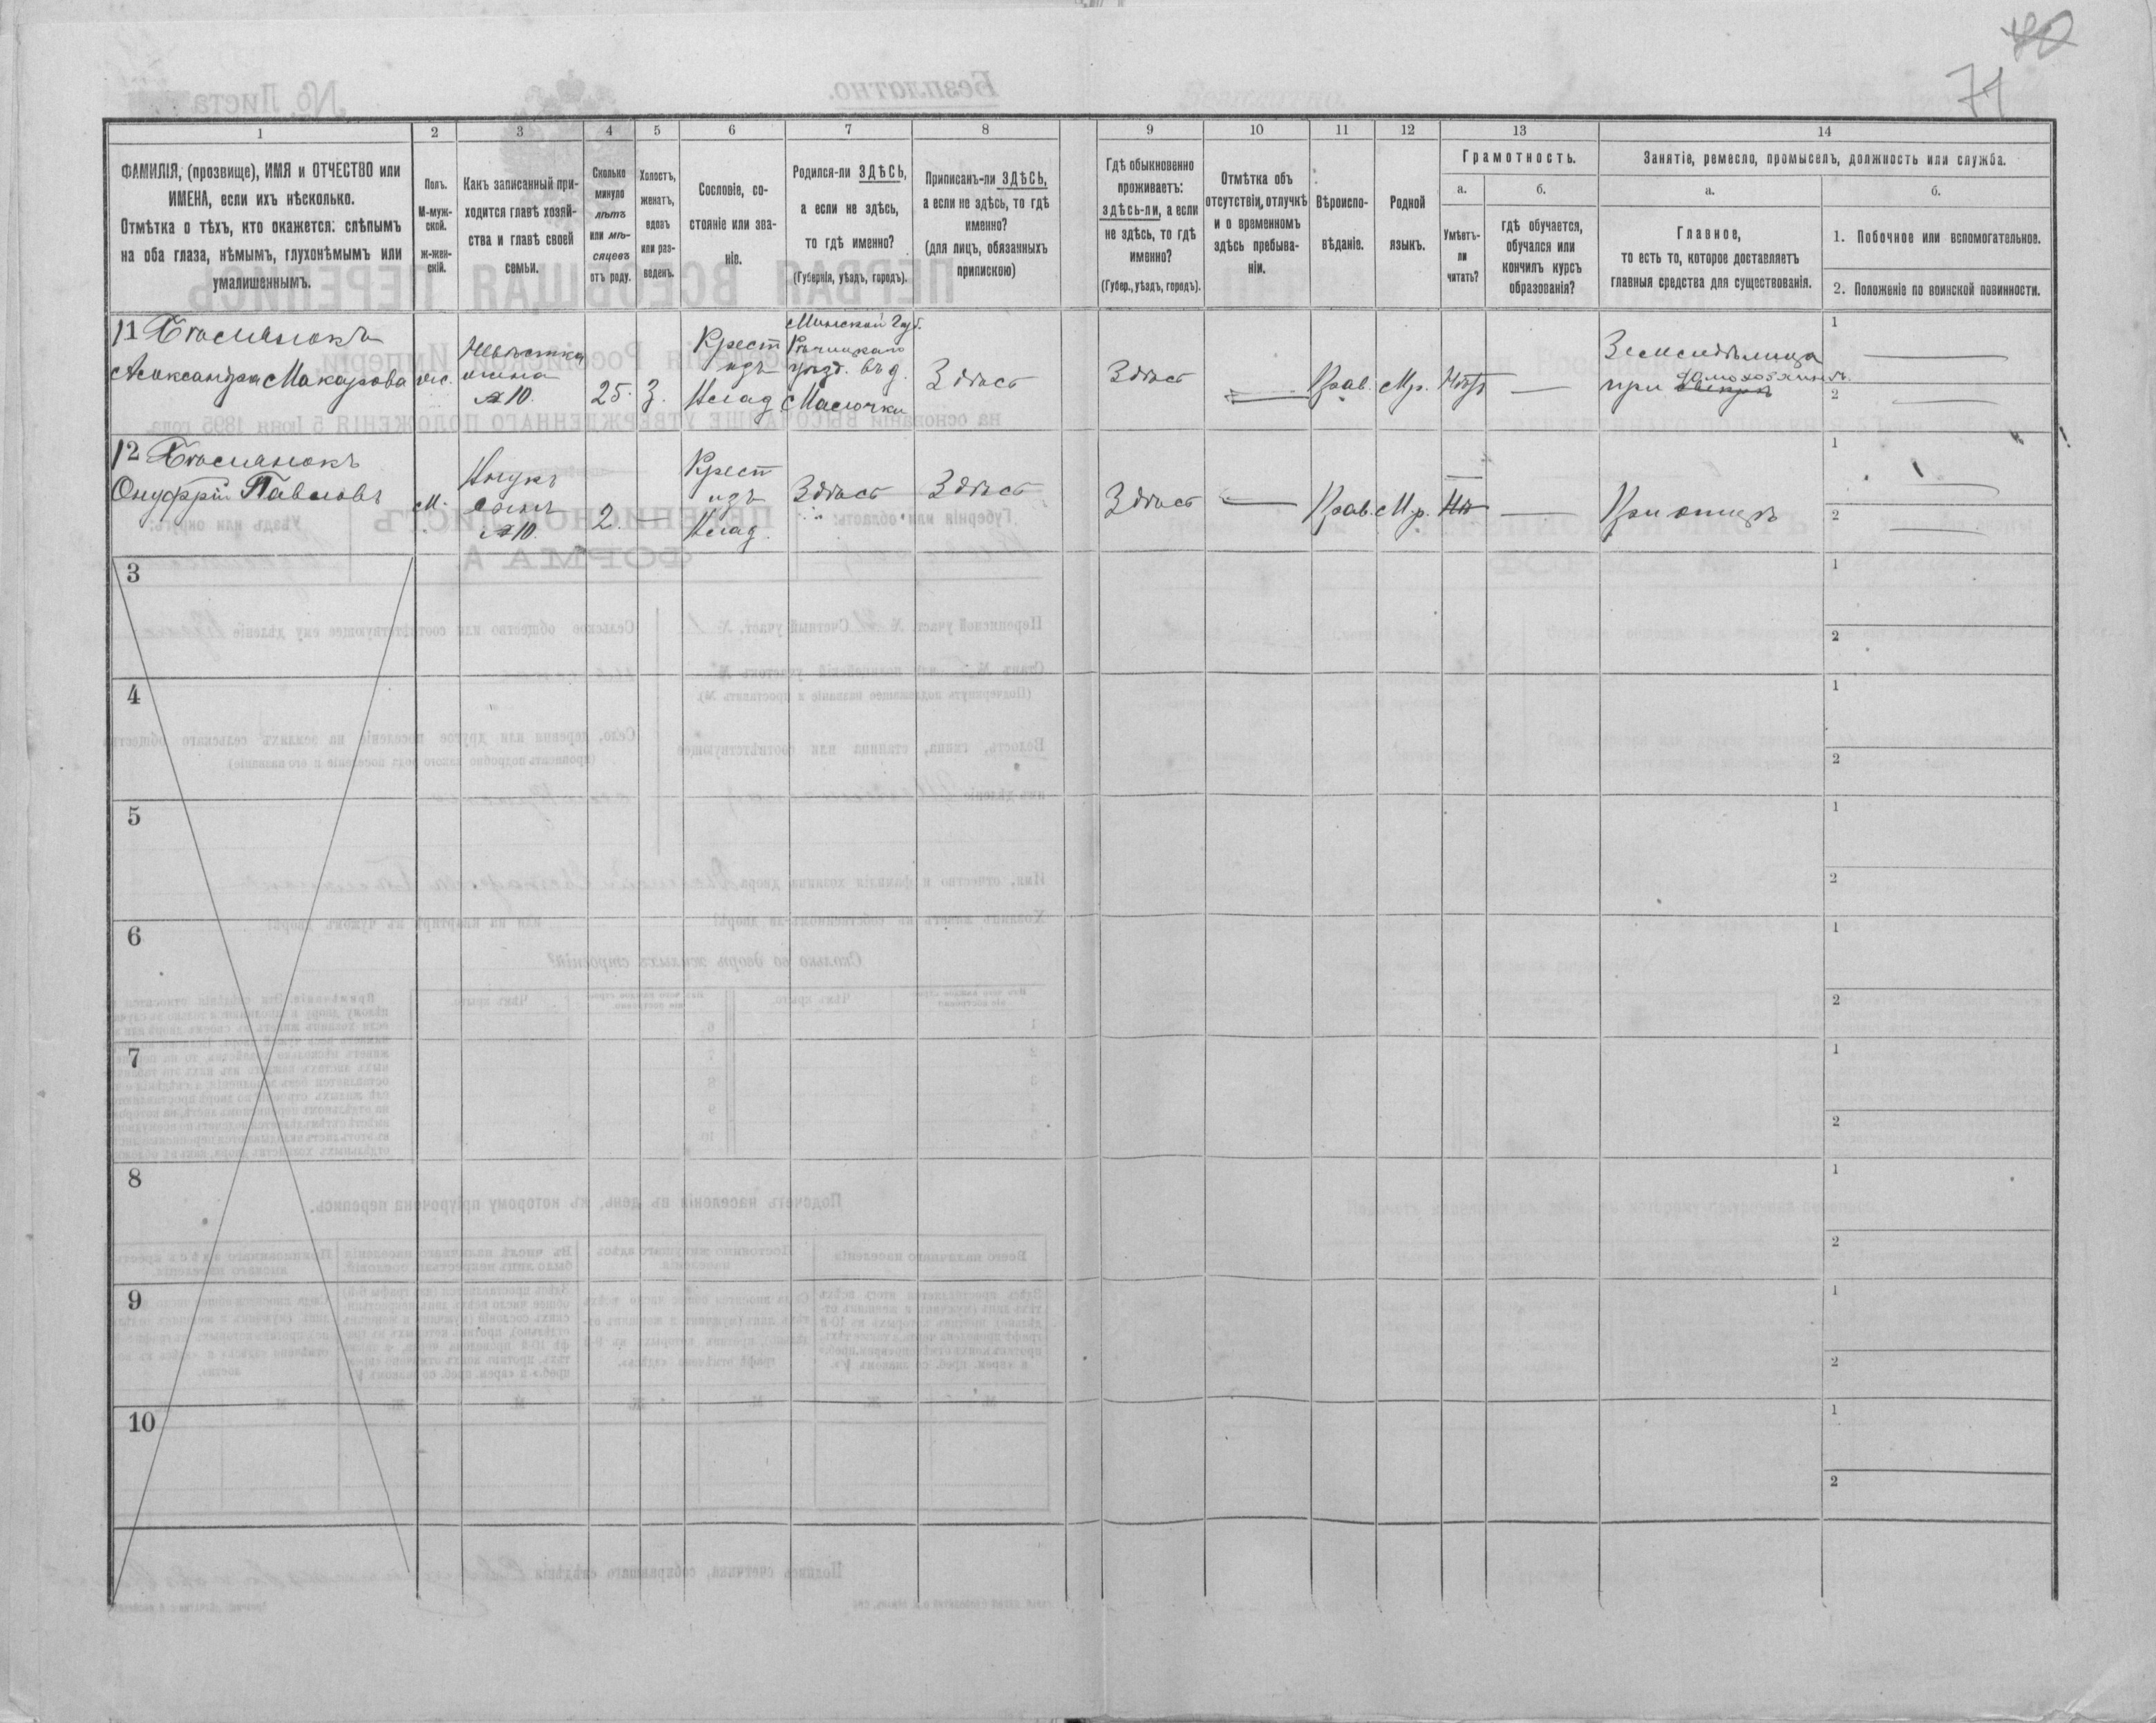 40
71
1
2
3
4
5
6
7
8
9
10
11
12
13
14
ФАМИЛІЯ, (прозвище), ИМЯ и ОТЧЕСТВО или
ИМЕНА, если ихъ нѣсколько.
Отмѣтка о тѣхъ, кто окажется: слѣпымъ
на оба глаза, нѣмымъ, глухонѣмымъ или
умалишеннымъ.
Полъ.
М-муж-
ской.
ж-жен-
скій.
Какъ записанный при-
ходится главѣ хозяй-
ства и главѣ своей
семьи.
Сколько
минуло
лѣтъ
или мѣ-
сяцевъ
отъ роду.
Холостъ,
женатъ,
вдовъ
или раз-
веденъ.
Сословіе, со-
стояніе или зва-
ніе.
Родился-ли ЗДѢСЬ,
а если не здѣсь,
то гдѣ именно?
(Губернія, уѣздъ, городъ).
Приписанъ-ли ЗДѢСЬ,
а если не здѣсь, то гдѣ
именно?
(для лицъ, обязанныхъ
припискою)
Гдѣ обыкновенно
проживаетъ:
здѣсь-ли, а если
не здѣсь, то гдѣ
именно?
(Губер., уѣздъ, городъ).
Отмѣтка объ
отсутствіи, отлучкѣ
и о временномъ
здѣсь пребыва-
ніи.
Вѣроиспо-
вѣданіе.
Родной
языкъ.
Грамотность.
а.
Умѣетъ-
ли
читать?
б.
гдѣ обучается,
обучался или
кончилъ курсъ
образованія?
Занятіе, ремесло, промыселъ, должность или служба.
а.
Главное,
то есть то, которое доставляетъ
главныя средства для существованія.
б.
1. Побочное или вспомогательное.
2. Положеніе по воинской повинности.
11
Александра Макарова
Невѣстка
жена
№ 10.
25.
З.
Крест
изъ
влад
Минской губ.
Рѣчицкаго
уѣзд. въ д.
Здѣсь
Здѣсь
Прав.
Мр.
Нѣтъ
Земледѣлица
при свекрѣ
домохозяинѣ.
1
2
12
Онуфрій Павловъ
М.
Внукъ
сынъ
№ 10.
2.
Крест
изъ
влад.
Здѣсь
Здѣсь
Здѣсь
Прав.
Мр.
Нѣ
При отцѣ
1
2
3
1
2
4
1
2
5
1
2
6
1
2
7
1
2
8
1
2
9
1
2
10
1
2